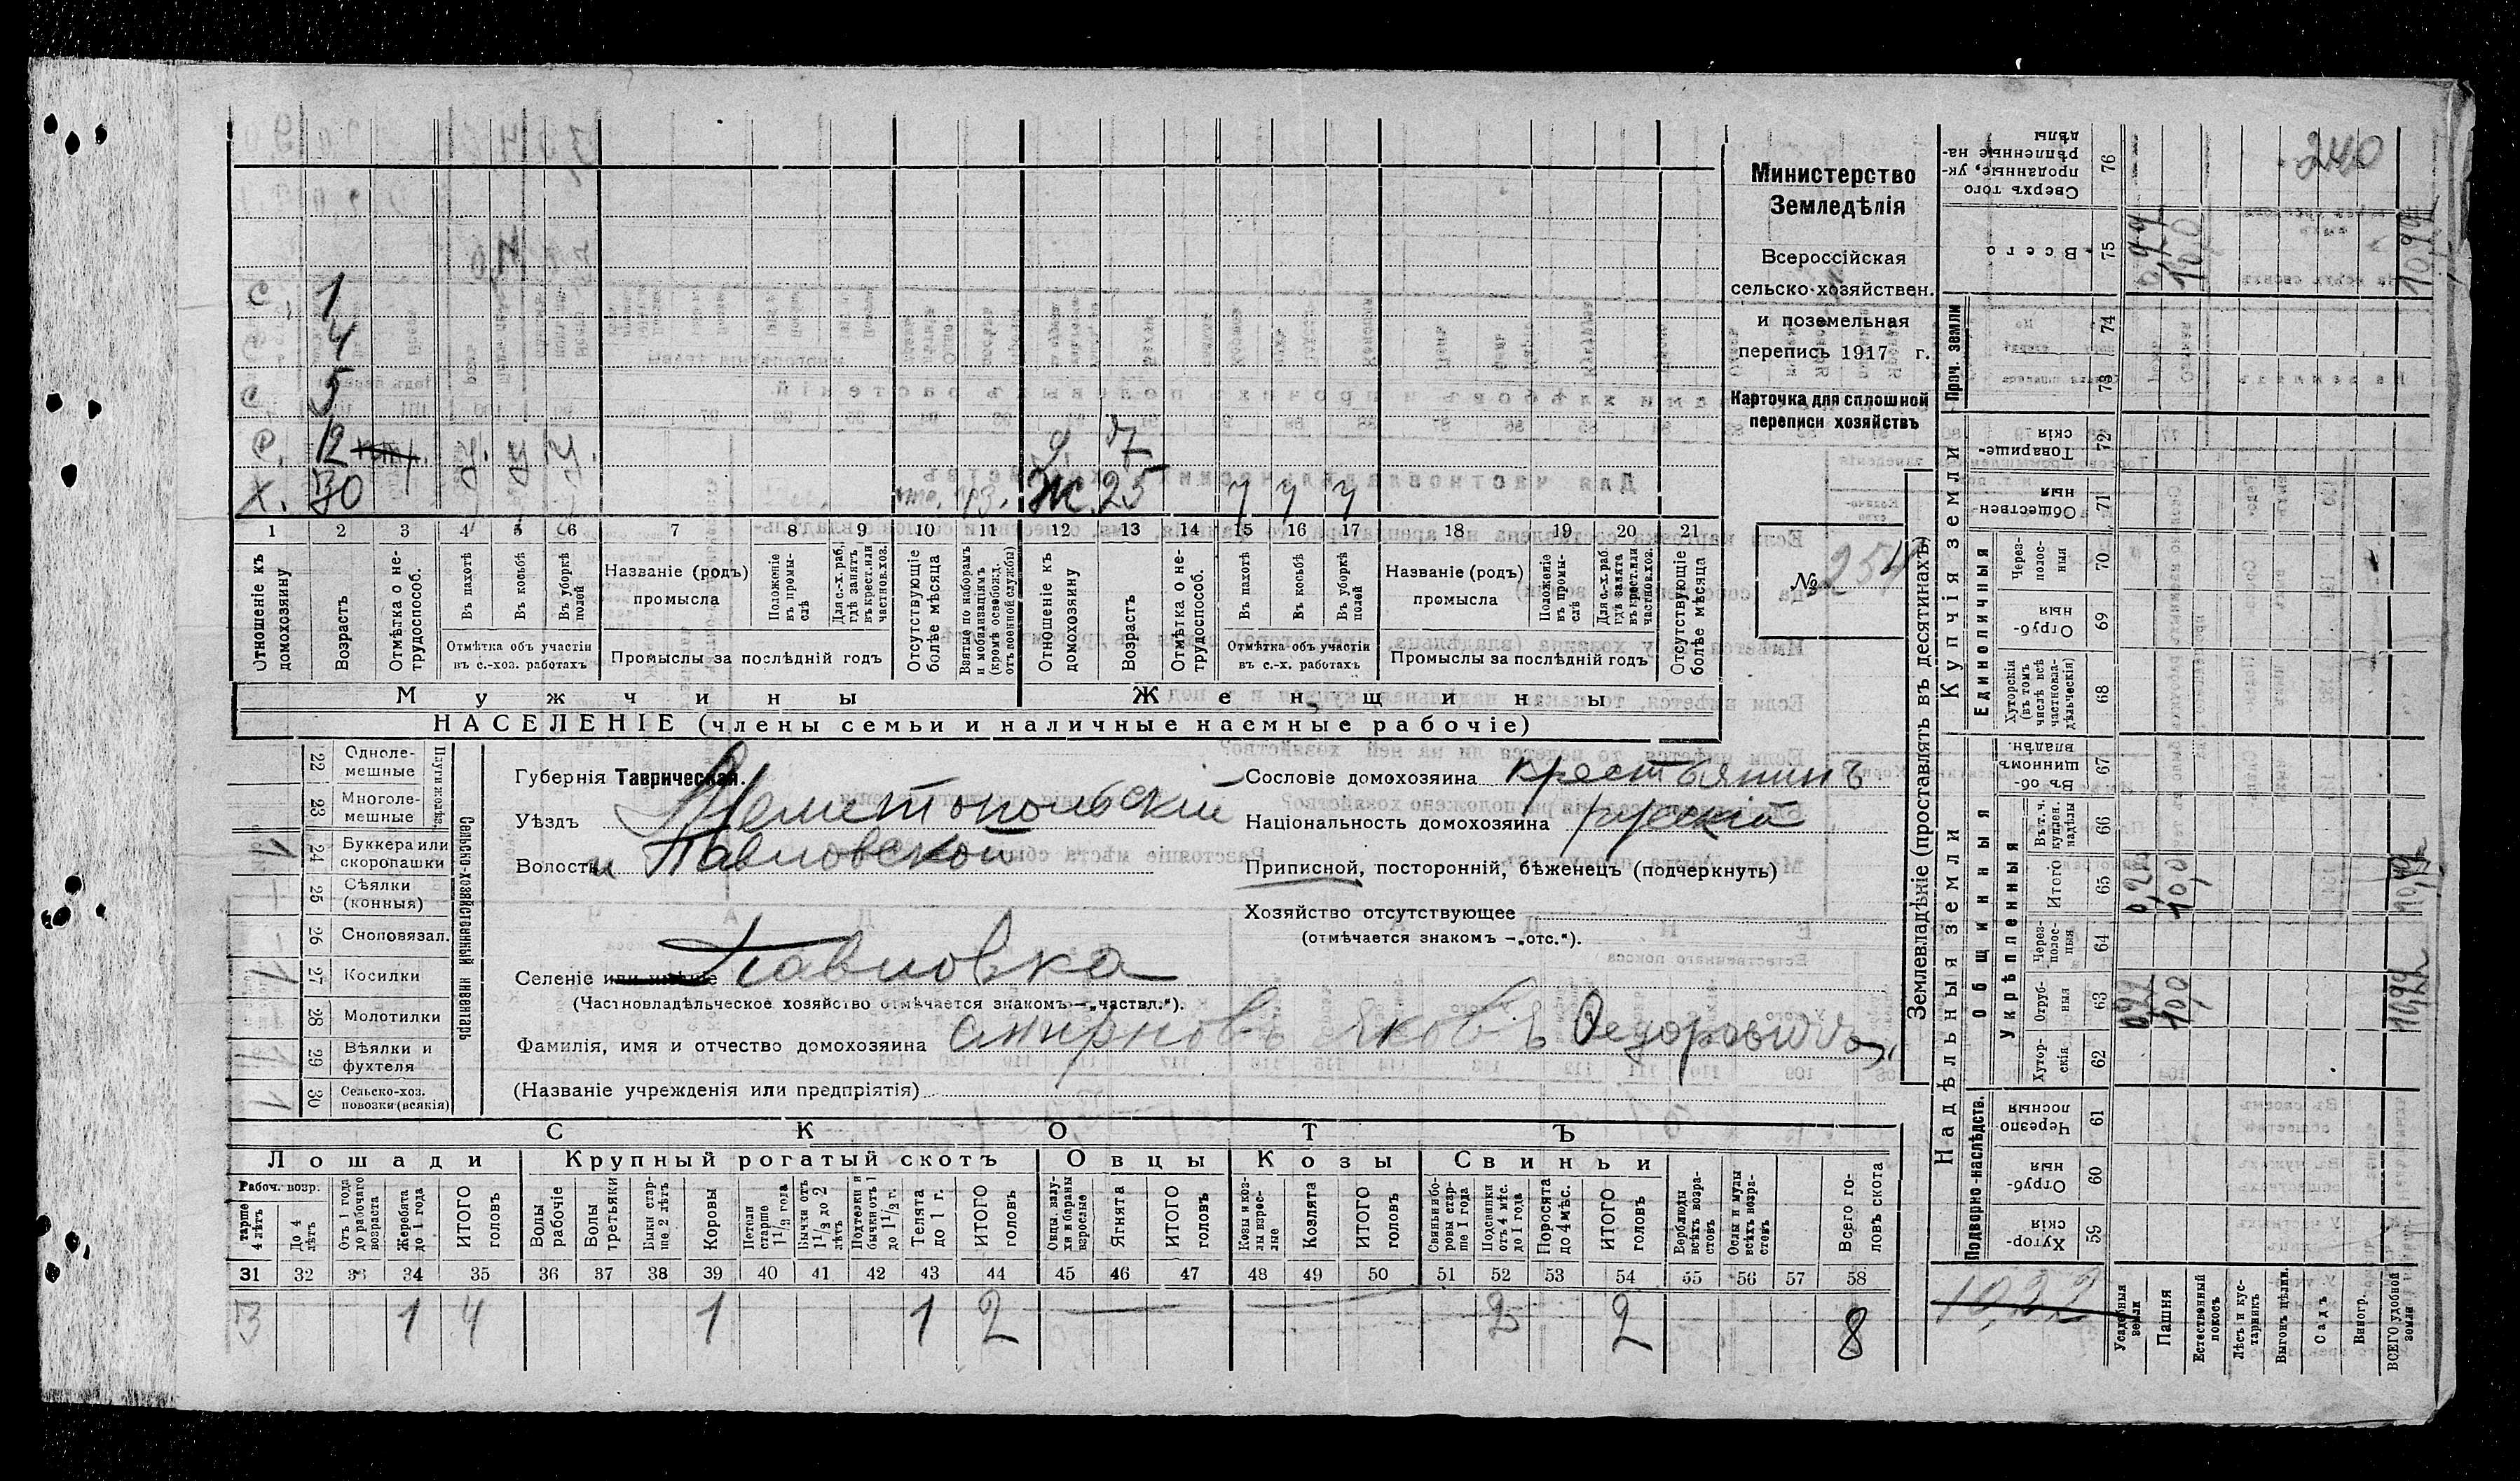 С. 1
4
С 5
Р. 12 у. у у. д. 7
Х. 30 отс. вз. Ж. 25 у у у
1 2 3 4 5 6 7 8 9 10 11 12 13 14 15 16 17 18 19 20 21
Отношеніе къ домохозяину
Возрастъ
Отмѣтка о нетрудоспособ.
Въ пахотѣ
Въ косьбѣ
Въ уборкѣ полей
Отмѣтка объ участіи въ с.-хоз. работахъ
Названіе (родъ) промысла
Положеніе въ промыслѣ
Для с.-х. раб., гдѣ занятъ въ крест. или частнов. хоз.
Промыслы за послѣдній годъ
Отсутствующіе болѣе мѣсяца
Взятые по наборамъ и мобилизаціямъ (кромѣ освобожд. отъ военной службы)
Отношеніе къ домохозяину
Возрастъ
Отмѣтка о нетрудоспособ.
Въ пахотѣ
Въ косьбѣ
Въ уборкѣ полей
Отмѣтка объ участіи въ с.-х. работахъ
Названіе (родъ) промысла
Положеніе въ промыслѣ
Для с.-х. раб. гдѣ занята въ крест. или частнов. хоз.
Промыслы за послѣдній годъ
Отсутствующіе болѣе мѣсяца
Мужчины
Женщины
НАСЕЛЕНІЕ (члены семьи и наличные наемные рабочіе)
Министерство
Земледѣлія
Всероссійская
сельско-хозяйствен.
и поземельная
перепись 1917 г.
Карточка для сплошной
переписи хозяйствъ
№ 254
22 Однолемешные
23 Многолемешные
24 Буккера или скоропашки 1
25 Сѣялки (конныя)
26 Сноповязал.
27 Косилки 1
28 Молотилки
29 Вѣялки и фухтеля 1
30 Сельско-хоз. повозки (всякія) 1
Сельско-хозяйственный инвентарь
Губернія Таврическая.
Уѣздъ Мелитопольскій
Волость Павловской
Селеніе или имѣніе Павловка
(Частновладѣльческое хозяйство отмѣчается знакомъ —„частвл.“).
Фамилія, имя и отчество домохозяина Смирновъ Яковъ Федоровичъ
(Названіе учрежденія или предпріятія)
Сословіе домохозяина крестьянинъ
Національность домохозяина русскій
Приписной, посторонній, бѣженецъ (подчеркнуть)
Хозяйство отсутствующее
(отмѣчается знакомъ —„отс.“).
СКОТЪ
Лошади Крупный рогатый скотъ Овцы Козы Свиньи
Рабоч. возр.
старше 4 лѣтъ
До 4 лѣтъ
Отъ 1 года до рабочаго возраста
Жеребята до 1 года
ИТОГО головъ
Волы рабочіе
Волы третьяки
Быки старше 2 лѣтъ
Коровы
Нетели старше 1 1/2 года
Бычки отъ 1 1/2 до 2 лѣтъ
Подтелки и бычки отъ 1 до 1 1/2 г.
Телята до 1 г.
ИТОГО головъ
Овцы, валухи и бараны взрослые
Ягнята
ИТОГО головъ
Козы и козлы взрослые
Козлята
ИТОГО головъ
Свиньи и боровы старше 1 года
Подсвинки отъ 4 мѣс. до 1 года
Поросята до 4 мѣс.
ИТОГО головъ
Верблюды всѣхъ возрастовъ
Ослы и мулы всѣхъ возрастовъ
Всего головъ скота
31 32 33 34 35 36 37 38 39 40 41 42 43 44 45 46 47 48 49 50 51 52 53 54 55 56 57 58
3 1 4 1 1 2 2 2 8
Землевладѣніе (проставлять въ десятинахъ)
Надѣльныя земли
Купчія земли
Проч. земли
Подворно-наслѣдств.
Общинныя
Укрѣпленныя
Единоличныя
Сверхъ того проданные, укрѣпленные надѣлы 76
Всего 75 10,0
74
73
Товарищескія 72
Общественныя 71
Черезполосныя 70
Отрубныя 69
Хуторскія (въ томъ числѣ всѣ частновладѣльческія) 68
Въ общинномъ владѣн. 67
Въ т. ч. куплен. надѣлы 66
Итого 65 0,22 10,0 10,22
Черезполосныя 64
Отрубныя 63 0,22 10,0 10,22
Хуторскія 62
Черезполосныя 61
Отрубныя 60
Хуторскія 59
10,22
Усадебныя земли
Пашня
Естественный покосъ
Лѣсъ и кустарникъ
Выгонъ цѣлин.
Садъ
Виногр.
ВСЕГО удобной земли
240